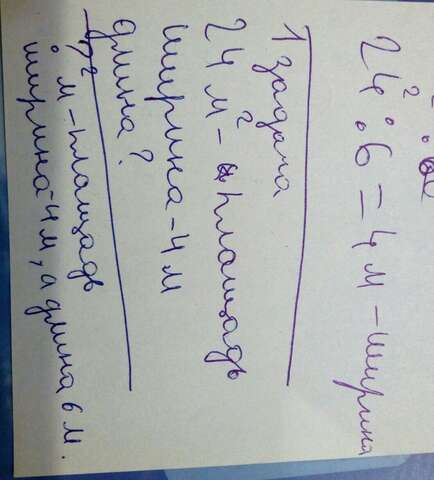 24² : 6 = 4 м – ширина
1 задача
24 м² – площадь
ширина – 4м
длина?
м² – площадь
ширина-4м, а длина 6 м.